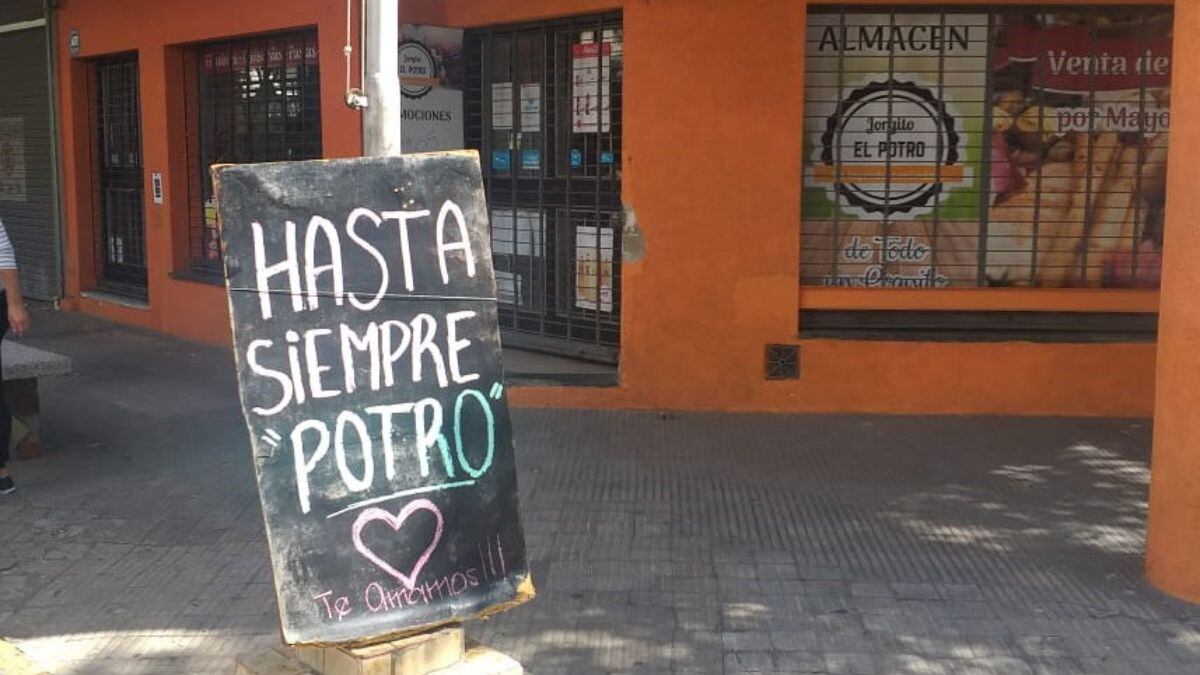 HASTA
SiEMPRE
"POTRO"
Te Amamos!!!
Jorgito
EL POTRO
MOCIONES
ALMACEN
Jorgito
EL POTRO
de Todo
un Poquito
Venta de
por Mayo